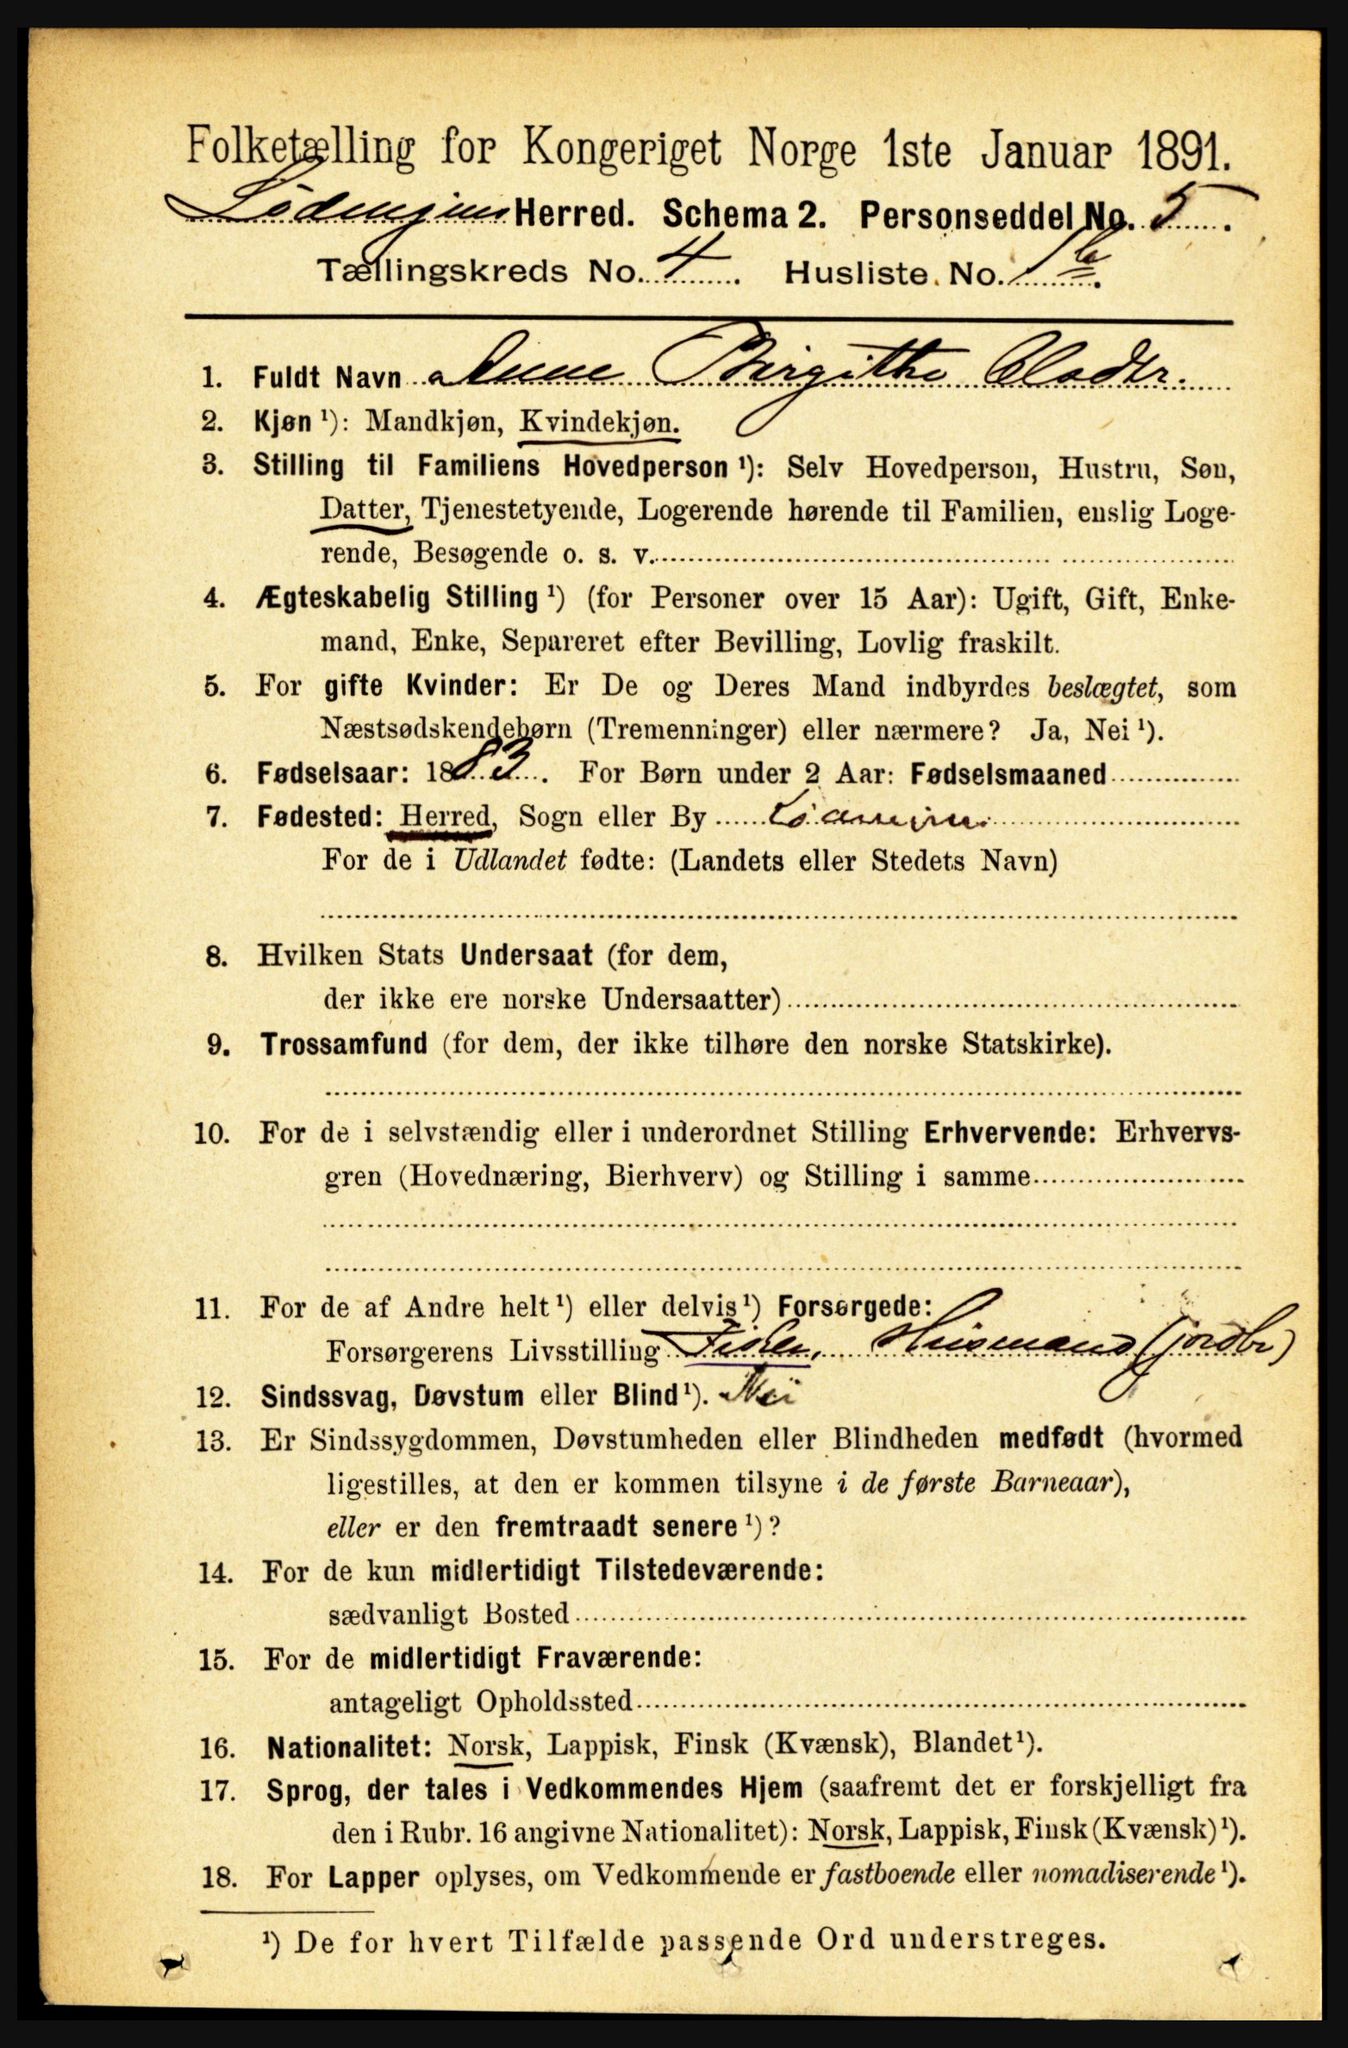 Folketælling for Kongeriget Norge 1ste Januar 1891.
Lødingens Herred. Schema 2. Personseddel No. 5.
Tællingskreds No. 4. Husliste No. 1b.
1. Fuldt Navn Anne Birgitha Oladtr.
2. Kjøn ¹): Mandkjøn, Kvindekjøn.
3. Stilling til Familiens Hovedperson ¹): Selv Hovedperson, Hustru, Søn,
Datter, Tjenestetyende, Logerende hørende til Familien, enslig Loge-
rende, Besøgende o. s. v.
4. Ægteskabelig Stilling ¹) (for Personer over 15 Aar): Ugift, Gift, Enke-
mand, Enke, Separeret efter Bevilling, Lovlig fraskilt.
5. For gifte Kvinder: Er De og Deres Mand indbyrdes beslægtet, som
Næstsødskendebørn (Tremenninger) eller nærmere? Ja, Nei ¹).
6. Fødselsaar: 1883. For Børn under 2 Aar: Fødselsmaaned
7. Fødested: Herred, Sogn eller By Lødingen
For de i Udlandet fødte: (Landets eller Stedets Navn)
8. Hvilken Stats Undersaat (for dem,
der ikke ere norske Undersaatter)
9. Trossamfund (for dem, der ikke tilhøre den norske Statskirke).
10. For de i selvstændig eller i underordnet Stilling Erhvervende: Erhvervs-
gren (Hovednæring, Bierhverv) og Stilling i samme
11. For de af Andre helt ¹) eller delvis ¹) Forsørgede:
Forsørgerens Livsstilling Fisker, Husmand (jordbr)
12. Sindssvag, Døvstum eller Blind ¹). Nei
13. Er Sindssygdommen, Døvstumheden eller Blindheden medfødt (hvormed
ligestilles, at den er kommen tilsyne i de første Barneaar),
eller er den fremtraadt senere ¹)?
14. For de kun midlertidigt Tilstedeværende:
sædvanligt Bosted
15. For de midlertidigt Fraværende:
antageligt Opholdssted
16. Nationalitet: Norsk, Lappisk, Finsk (Kvænsk), Blandet ¹).
17. Sprog, der tales i Vedkommendes Hjem (saafremt det er forskjelligt fra
den i Rubr. 16 angivne Nationalitet): Norsk, Lappisk, Finsk (Kvænsk) ¹).
18. For Lapper oplyses, om Vedkommende er fastboende eller nomadiserende ¹).
¹) De for hvert Tilfælde passende Ord understreges.